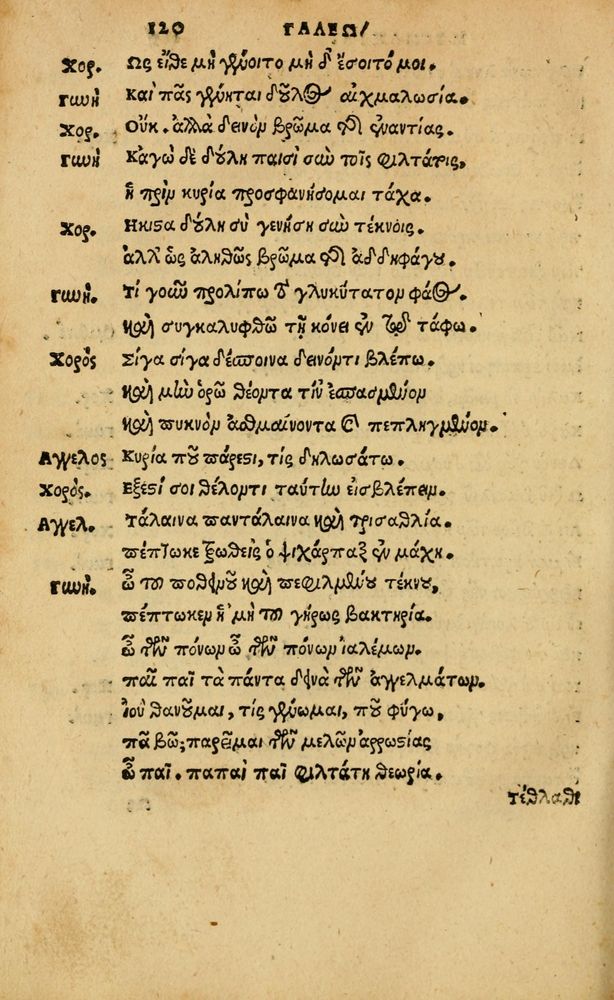 120 ΓΑΛΕΩ/
Χορ. Ως εἴθε μὴ γένοιτο μὴ δ' ἔσοιτό μοι.
Γωὴ Καὶ πᾶς γένηται δοῦλος αἰχμαλωσία.
Χορ. Οὔκ. ἀλλὰ δεινὸν βρῶμα τῆς ἐναντίας.
Γωὴ Κἀγὼ δὲ δούλη παισὶ σὺν τοῖς φιλτάτοις,
ἢ πρὶν κυρία προσφανήσομαι τάχα.
Χορ. Ηκιστα δούλη σὺ γενήση σὺν τέκνοις.
ἀλλ' ὡς ἀληθῶς βρῶμα τῆς ἀδδηφάγου.
Γωὴ. Τί γοῦν προλίπω τὸ γλυκύτατον φάος.
καὶ συγκαλυφθῶ τῇ κόνει ἐν τῷ τάφω.
Χορὸς Σίγα σίγα δέσποινα δεινόν τι βλέπω.
καὶ μὴν ὁρῶ θέοντα τὶν' ἐσπασμένον
καὶ πυκνὸν ἀσθμαίνοντα καὶ πεπληγμένον.
Αγγελος Κυρία ποῦ πάρεστι, τίς δηλωσάτω.
Χορὸς. Εξεστί σοι θέλοντι ταύτην εἰσβλέπειν.
Αγγελ. Τάλαινα παντάλαινα καὶ τρισαθλία.
πέπτωκε ἐξωθεὶς ὁ ψιχάρπαξ ἐν μάχη.
Γωὴ. ὦ τοῦ ποθεινοῦ καὶ πεφιλμένου τέκνου,
πέπτωκεν ἡ 'μὴ τοῦ γήρως βακτηρία.
ὦ τῶν πόνων ὦ τῶν πόνων ἰαλέμων.
παῖ παῖ τὰ πάντα δεινὰ τῶν ἀγγελμάτων.
ἰοὺ θανοῦμαι, τίς γένωμαι, ποῦ φύγω,
πᾶ βῶ; παρεῖμαι τῶν μελῶν ἀρρωστίας
ὦ παῖ. παπαὶ παῖ φιλτάτη θεωρία.
τέθλαθι